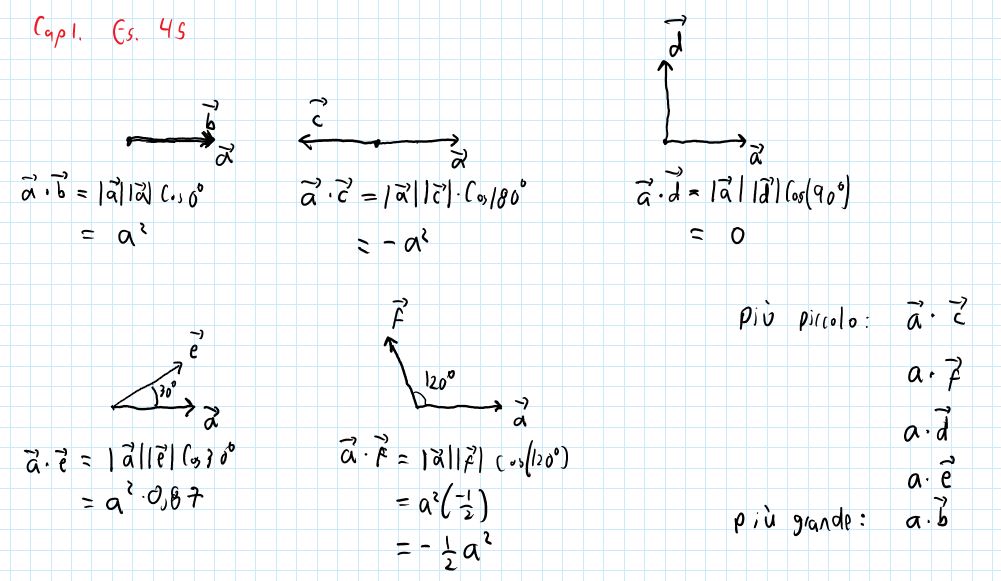 Cap1. Es. 45
b⃗
a⃗
a⃗·b⃗ = |a⃗||a⃗| Cos 0°
= a²
c⃗
a⃗
a⃗·c⃗ = |a⃗||c⃗|·Cos 180°
= -a²
d⃗
a⃗
a⃗·d⃗ = |a⃗||d⃗| Cos(90°)
= 0
e⃗
30°
a⃗
a⃗·e⃗ = |a⃗||e⃗| Cos 30°
= a²·0,87
F⃗
120°
a⃗
a⃗·F⃗ = |a⃗||F⃗| cos(120°)
= a²(-1/2)
= -1/2 a²
più piccolo: a⃗·c⃗
a·F⃗
a·d⃗
a·e⃗
più grande: a·b⃗